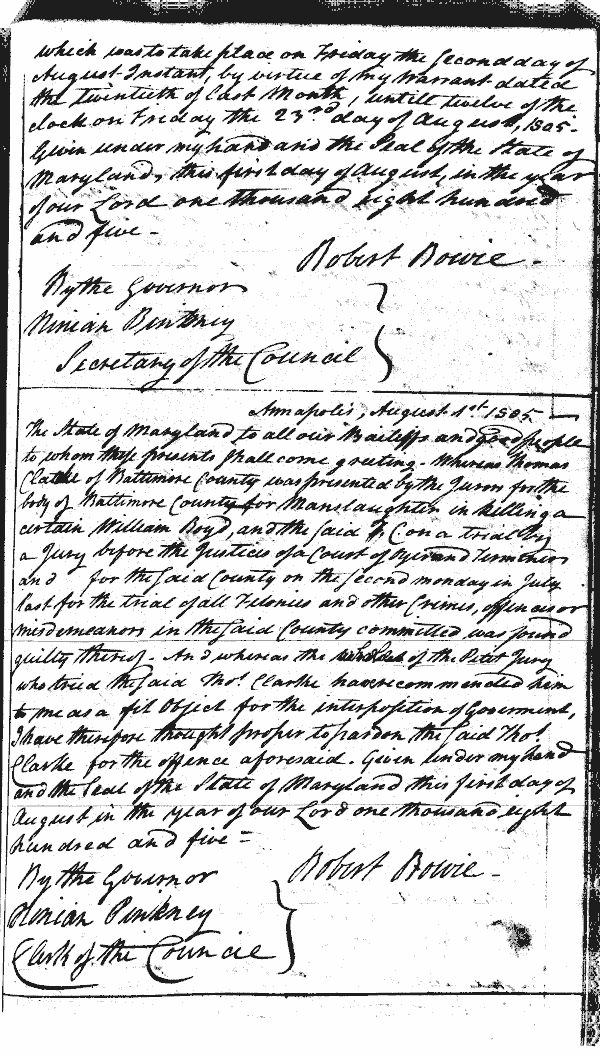 which was to take place on Friday the second day of
August Instant, by virtue of my Warrant dated
the twentieth of last Month, untill twelve of the
clock on Friday the 23rd day of August, 1805.
Given under my hand and the Seal of the State of
Maryland, this first day of August, in the year
of our Lord one thousand eight hundred
and five -
Robert Bowie -
By the Governor
Ninian Pinkney
Secretary of the Council
Annapolis, August 1st 1805 -
The State of Maryland to all our Bailiffs and good people
to whom these presents shall come greeting - Whereas Thomas
Clarke of Baltimore County was presented by the Jurors for the
body of Baltimore County for Manslaughter in killing a
certain William Boyd, and the said T. C on a trial by
a Jury before the Justices of a Court of Oyer and Terminer
and for the said County on the second monday in July
last for the trial of all Felonies and other Crimes, offences or
misdemeanors in the said County committed was found
guilty thereof - And whereas the of the Petit Jury
who tried the said Thos. Clarke have recommended him
to me as a fit Object for the interposition of Goverment,
I have therefore thought proper to pardon the said Thos.
Clarke for the offence aforesaid. Given under my hand
and the Seal of the State of Maryland this first day of
August in the year of our Lord one thousand eight
hundred and five =
Robert Bowie -
By the Governor
Ninian Pinkney
Clerk of the Council